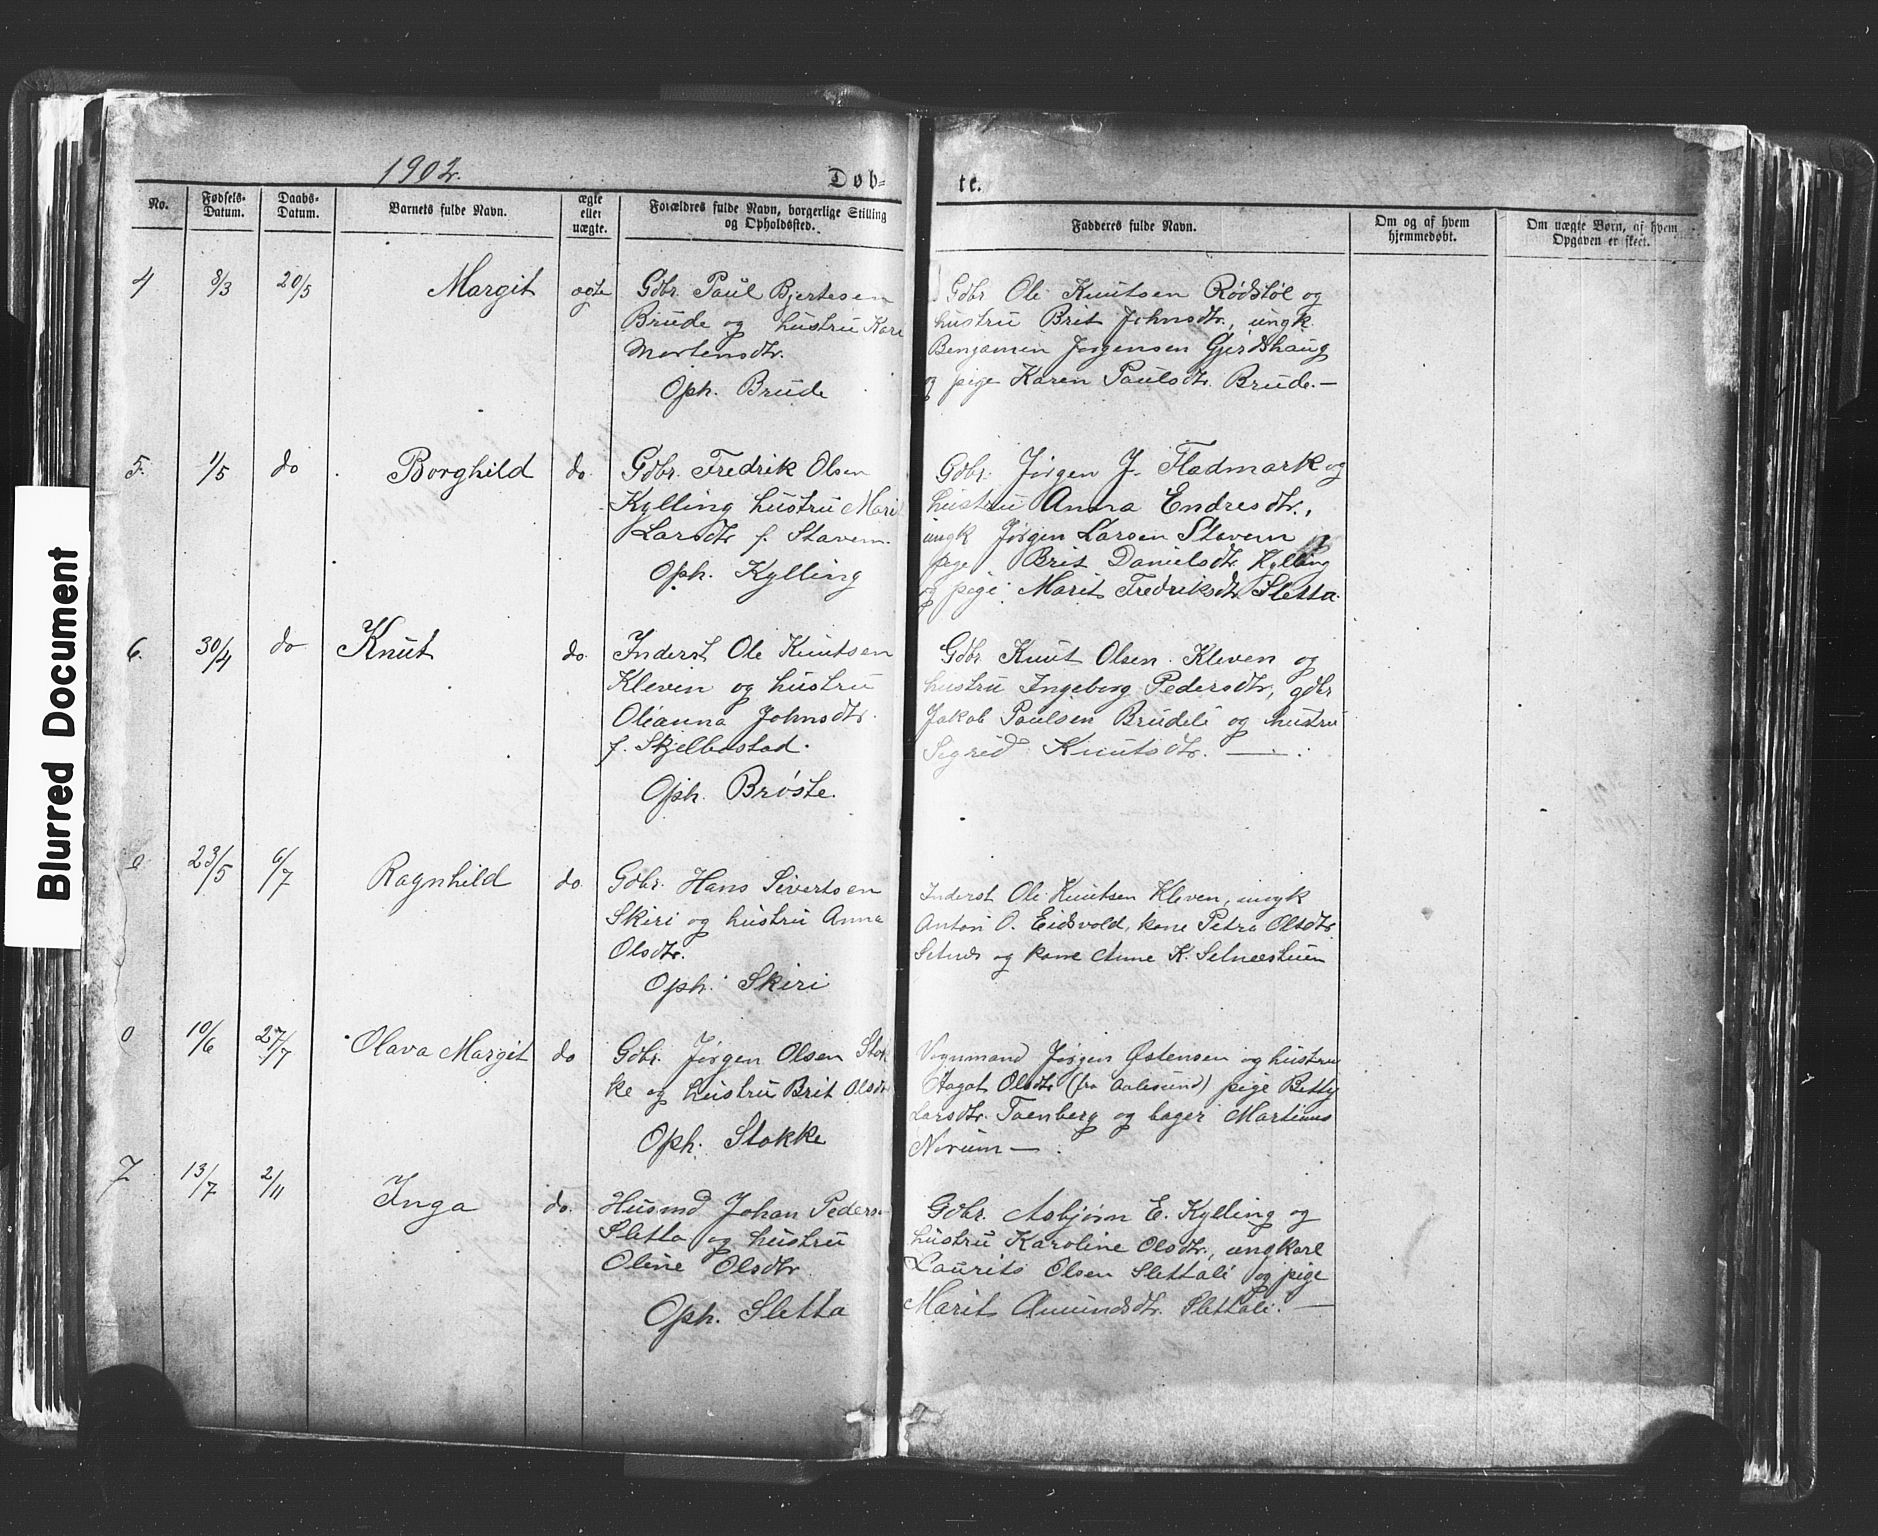 Blurred Document
1902.
Døb-
te.
No.
Fødsels-
Datum.
Daabs-
Datum.
Barnets fulde Navn.
ægte
eller
uægte.
Forældres fulde Navn, borgerlige Stilling
og Opholdssted.
Faddernes fulde Navn.
Om og af hvem
hjemmedøbt.
Om uægte Børn, af hvem
Opgaven er skeet.
4 8/3 20/5 Margit ægte
Gdbr. Paul Bjertesen
Brude og hustru Kari
Mortensdtr.
Oph. Brude
Gdbr Ole Knutsen Rødstøl og
hustru Brit Johnsdtr., ungk.
Benjamin Jørgensen Gjerdshaug
og pige Karen Paulsdtr. Brude.—
5. 1/5 do Borghild do.
Gdbr. Fredrik Olsen
Kylling hustru Marit
Larsdtr f. Stavem.
Oph. Kylling
Gdbr. Jørgen J. Fladmark og
hustru Anna Endresdtr.,
ungk Jørgen Larsen Stavem
pige Brit Danielsdtr Kylling
og pige Marit Fredriksdtr Sletta.
6. 30/4 do Knut do.
Inderst Ole Knutsen
Kleven og hustru
Olianna Johnsdtr.
f. Skjelbostad.
Oph. Brøste.
Gdbr Knut Olsen Kleven og
hustru Ingeborg Pedersdtr, gdbr
Jakob Paulsen Brudeli og hustru
Sigrid Knutsdtr. —
23/5 6/7 Ragnhild do
Gdbr. Hans Sivertsen
Skiri og hustru Anna
Olsdtr.
Oph. Skiri
Inderst Ole Knutsen Kleven, ungk
Anton O. Eidsvold, kone Petra Olsdtr
og kone Anne K. Selnesstuen
10/6 27/7 Olava Margit do
Gdbr. Jørgen Olsen Stok
ke og hustru Brit Olsdtr
Oph. Stokke
Vognmand Jørgen Østensen og hustru
Aagot Olsdtr (fra Aalesund) pige Betty
Larsdtr. Taenberg og bager Martinus
Norum —
7 13/7 2/11 Inga do.
Husmd Johan Peders.
Sletta og hustru
Oline Olsdtr
Oph. Sletta
Gdbr. Asbjørn E. Kylling og
hustru Karoline Olsdtr., ungkarl
Laurits Olsen Slettali og pige
Marit Amundsdtr. Slettali. —